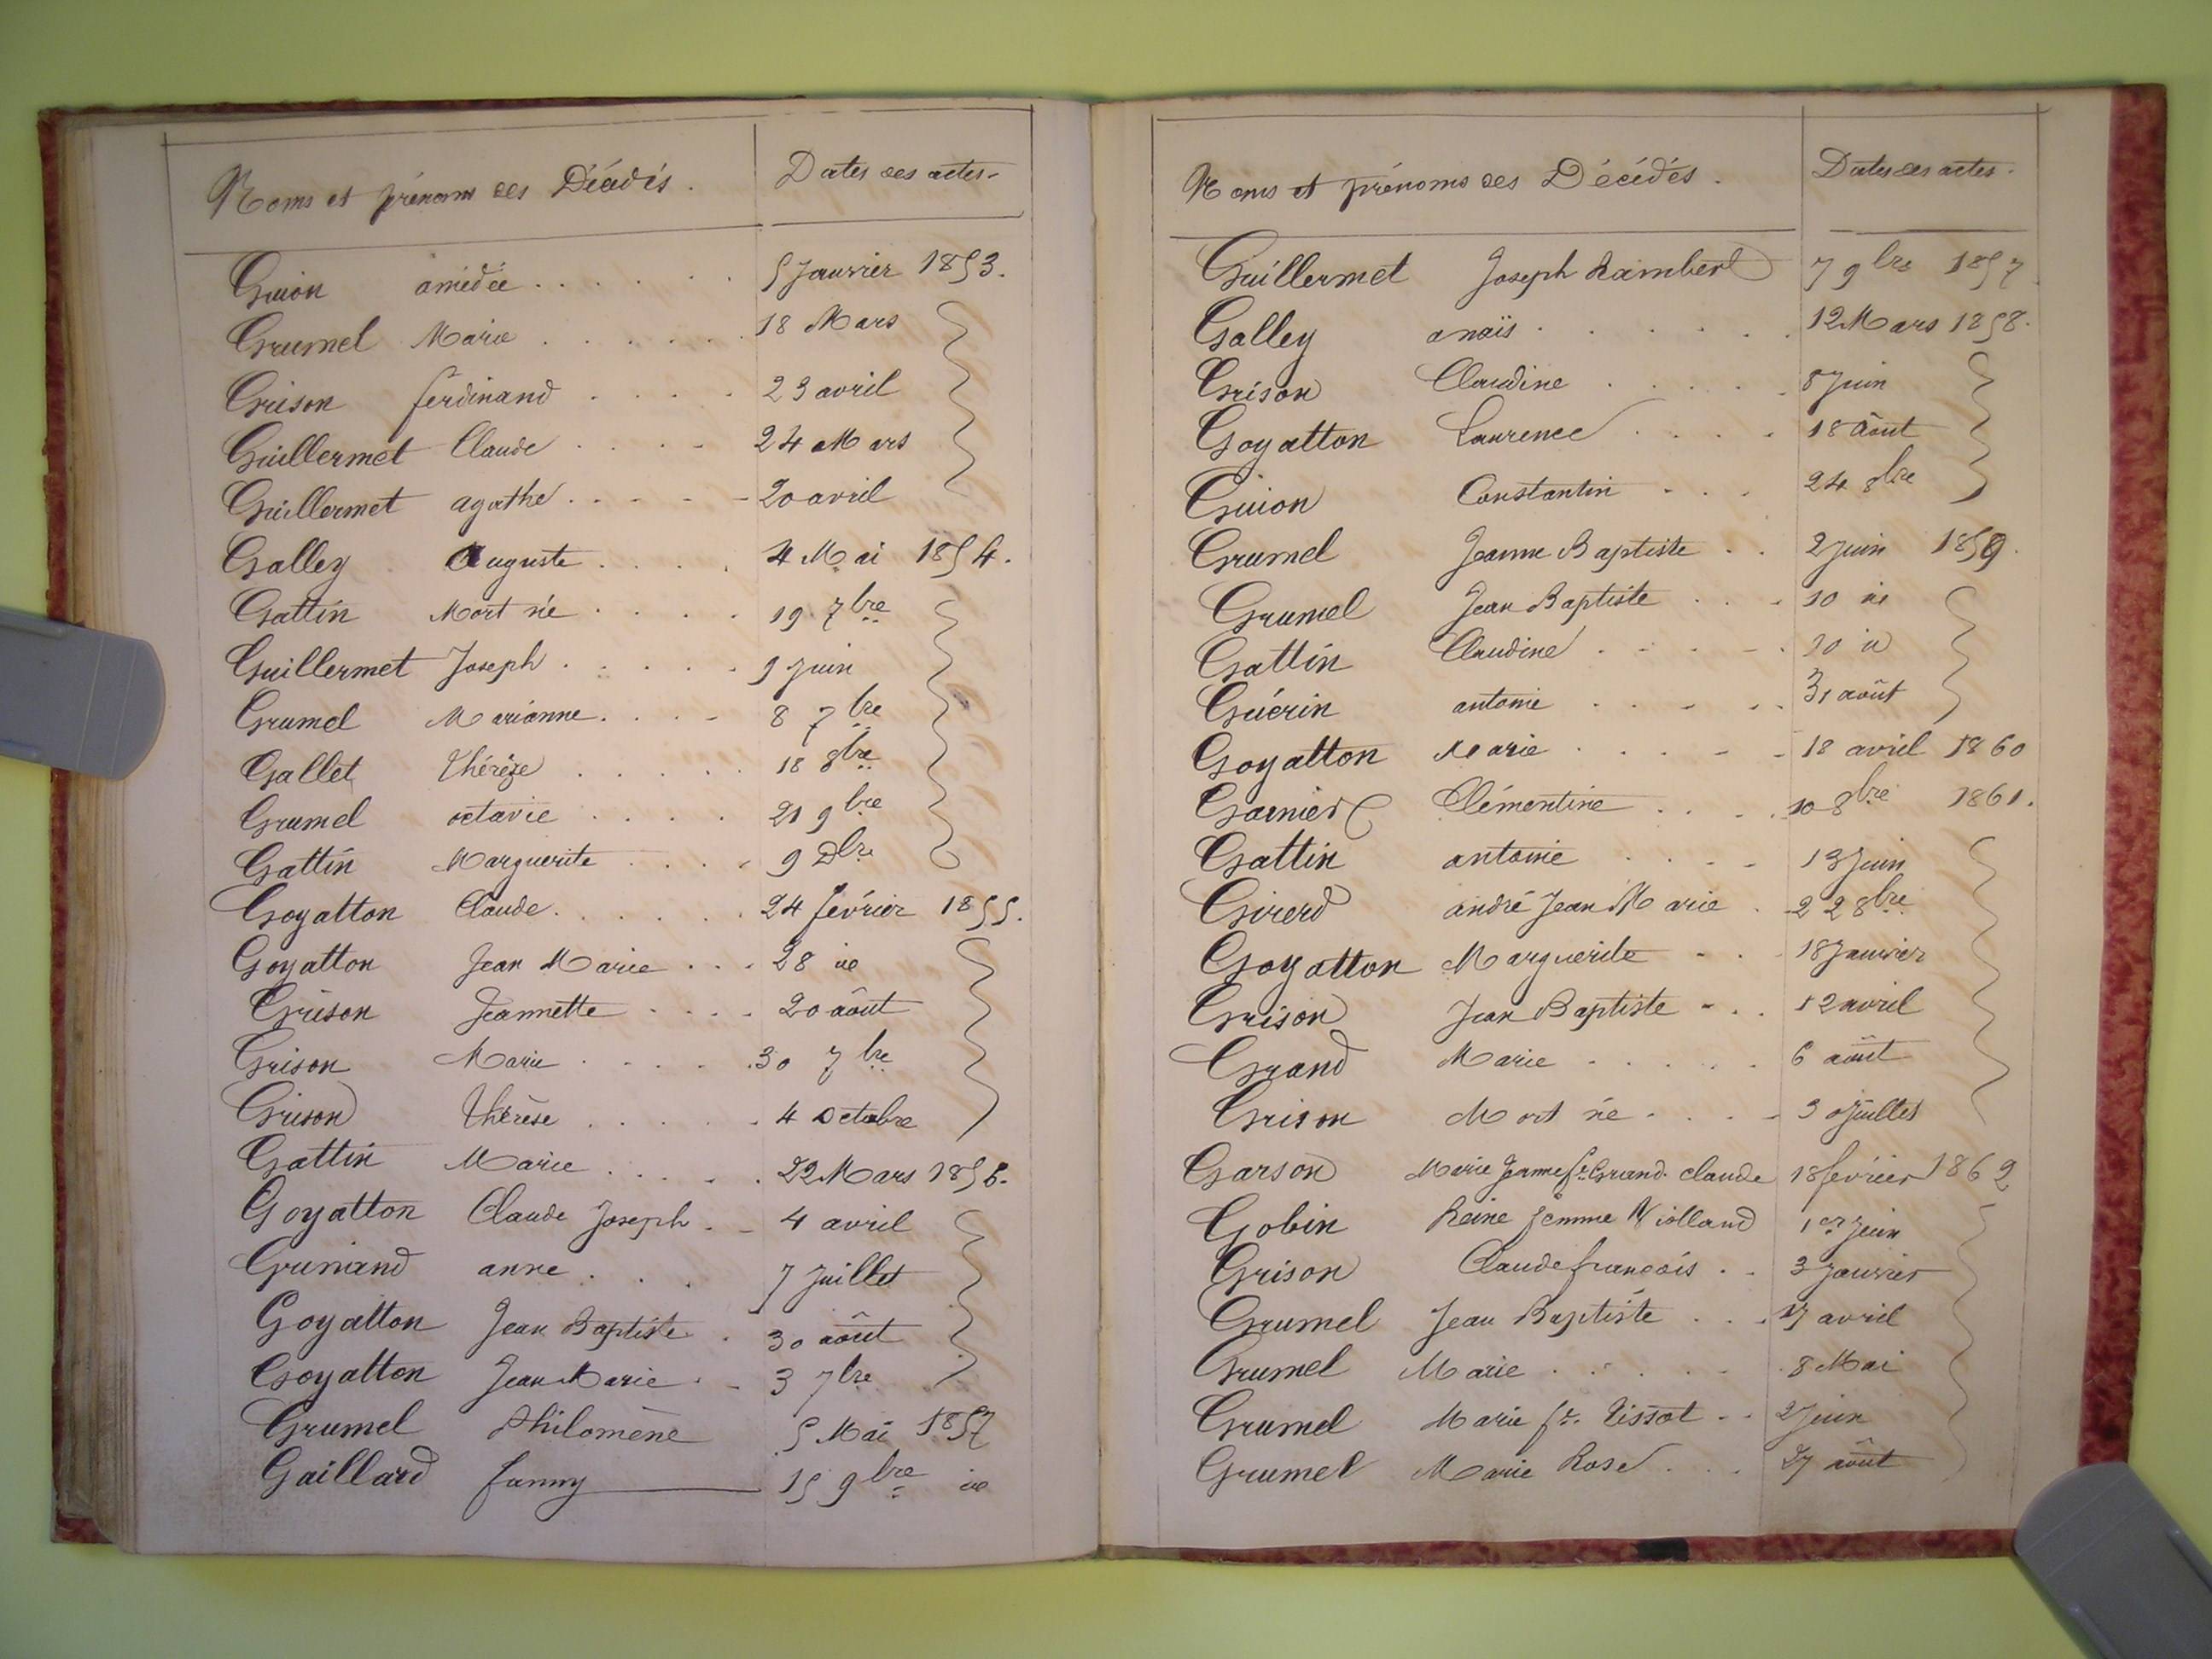 Noms et prénoms des Décédés. Dates des actes.
Guion amédée 5 Janvier 1853.
Grumel Marie 18 Mars
Grison ferdinand 23 avril
Guillermet Claude 24 Mars
Guillermet agathe 20 avril
Galley Auguste 4 Mai 1854.
Gattin Mort né 19 7bre
Guillermet Joseph 9 Juin
Grumel Marianne 8 7bre
Gallet Thérèze 18 8bre
Grumel octavie 21 9bre
Gattin Marguerite 9 Dbre
Goyatton Claude 24 février 1855.
Goyatton Jean Marie 28 id
Grison Jeannette 20 août
Grison Marie 30 7bre
Grison Thérèse 4 Octobre
Gattin Marie 22 Mars 1856.
Goyatton Claude Joseph 4 avril
anne 7 Juillet
Goyatton Jean Baptiste 30 août
Goyatton Jean Marie 3 7bre
Grumel Philomène 5 Mai 1857
Gaillard fanny 15 9bre id
Noms et prénoms des Décédés. Dates des actes.
Guillermet Joseph Rambert 7 9bre 1857.
Galley anaïs 12 Mars 1858.
Grison Claudine 8 Juin
Goyatton Laurence 18 Août
Guion Constantin 24 8bre
Grumel Jeanne Baptiste 2 Juin 1859.
Grumel Jean Baptiste 10 id
Gattin Claudine 10 id
Guérin antoine 31 août
Goyatton Marie 18 avril 1860
Garnier Clémentine 10 8bre 1861.
Gattin antoine 13 Juin
Girerd andré Jean Marie 22 8bre
Goyatton Marguerite 18 Janvier
Grison Jean Baptiste 12 avril
Grand Marie 6 août
Grison Mort né 30 Juillet
Garson Marie Jeanne fe Grand Claude 18 février 1862
Gobin Reine femme Violland 1er Juin
Grison Claude françois 3 Janvier
Grumel Jean Baptiste 17 avril
Grumel Marie 8 Mai
Grumel Marie fe Tissot 2 Juin
Grumel Marie Rose 27 août